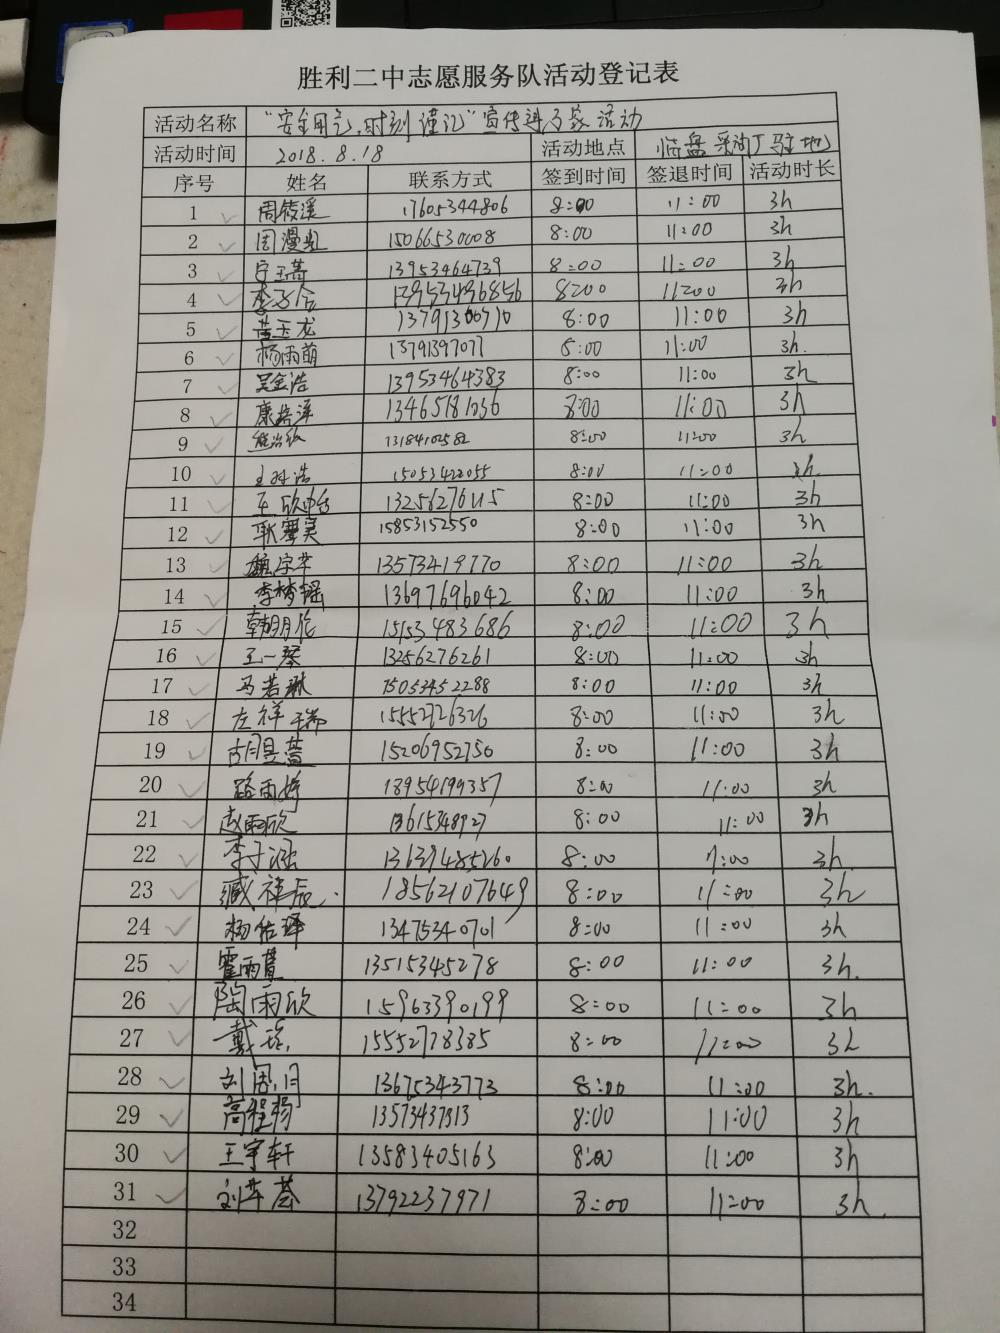 胜利二中志愿服务队活动登记表
活动名称 "安全用气,时刻谨记"宣传进万家活动
活动时间 2018.8.18 活动地点 临盘采油厂驻地
序号 姓名 联系方式 签到时间 签退时间 活动时长
1 周筱溪 17605344806 8:00 11:00 3h
2 周漫 15066530008 8:00 11:00 3h
3 13953464739 8:00 11:00 3h
4 李子 13953496856 8:00 11:00 3h
5 黄玉龙 13791300710 8:00 11:00 3h
6 杨雨萌 13791397077 8:00 11:00 3h.
7 吴金浩 13953464383 8:00 11:00 3h
8 康 13465181036 8:00 11:00 3h
9 13184102582 8:00 11:00 3h
10 浩 15053422055 8:00 11:00 3h.
11 王欣 13256276115 8:00 11:00 3h
12 耿 15853152550 8:00 11:00 3h
13 魏宇 13573419770 8:00 11:00 3h
14 李梦瑶 13697696042 8:00 11:00 3h
15 韩明伦 15153483686 8:00 11:00 3h
16 王一琴 13256276261 8:00 11:00 3h
17 马若琳 15053452288 8:00 11:00 3h
18 左祥瑞 15552726326 8:00 11:00 3h
19 胡昱萱 15206952750 8:00 11:00 3h
20 路雨婷 18954199357 8:00 11:00 3h
21 赵雨欣 13615348927 8:00 11:00 3h
22 李子涵 13639485260 8:00 11:00 3h
23 臧祥辰 18562107649 8:00 11:00 3h
24 杨佑泽 13475340701 8:00 11:00 3h
25 霍雨萱 13515345278 8:00 11:00 3h.
26 陶雨欣 15963390199 8:00 11:00 3h
27 戴 15552778385 8:00 11:00 3h
28 刘周月 13675343773 8:00 11:00 3h.
29 高程翔 13573437313 8:00 11:00 3h
30 王宇轩 13583405163 8:00 11:00 3h
31 刘芊荟 13792237971 8:00 11:00 3h.
32
33
34